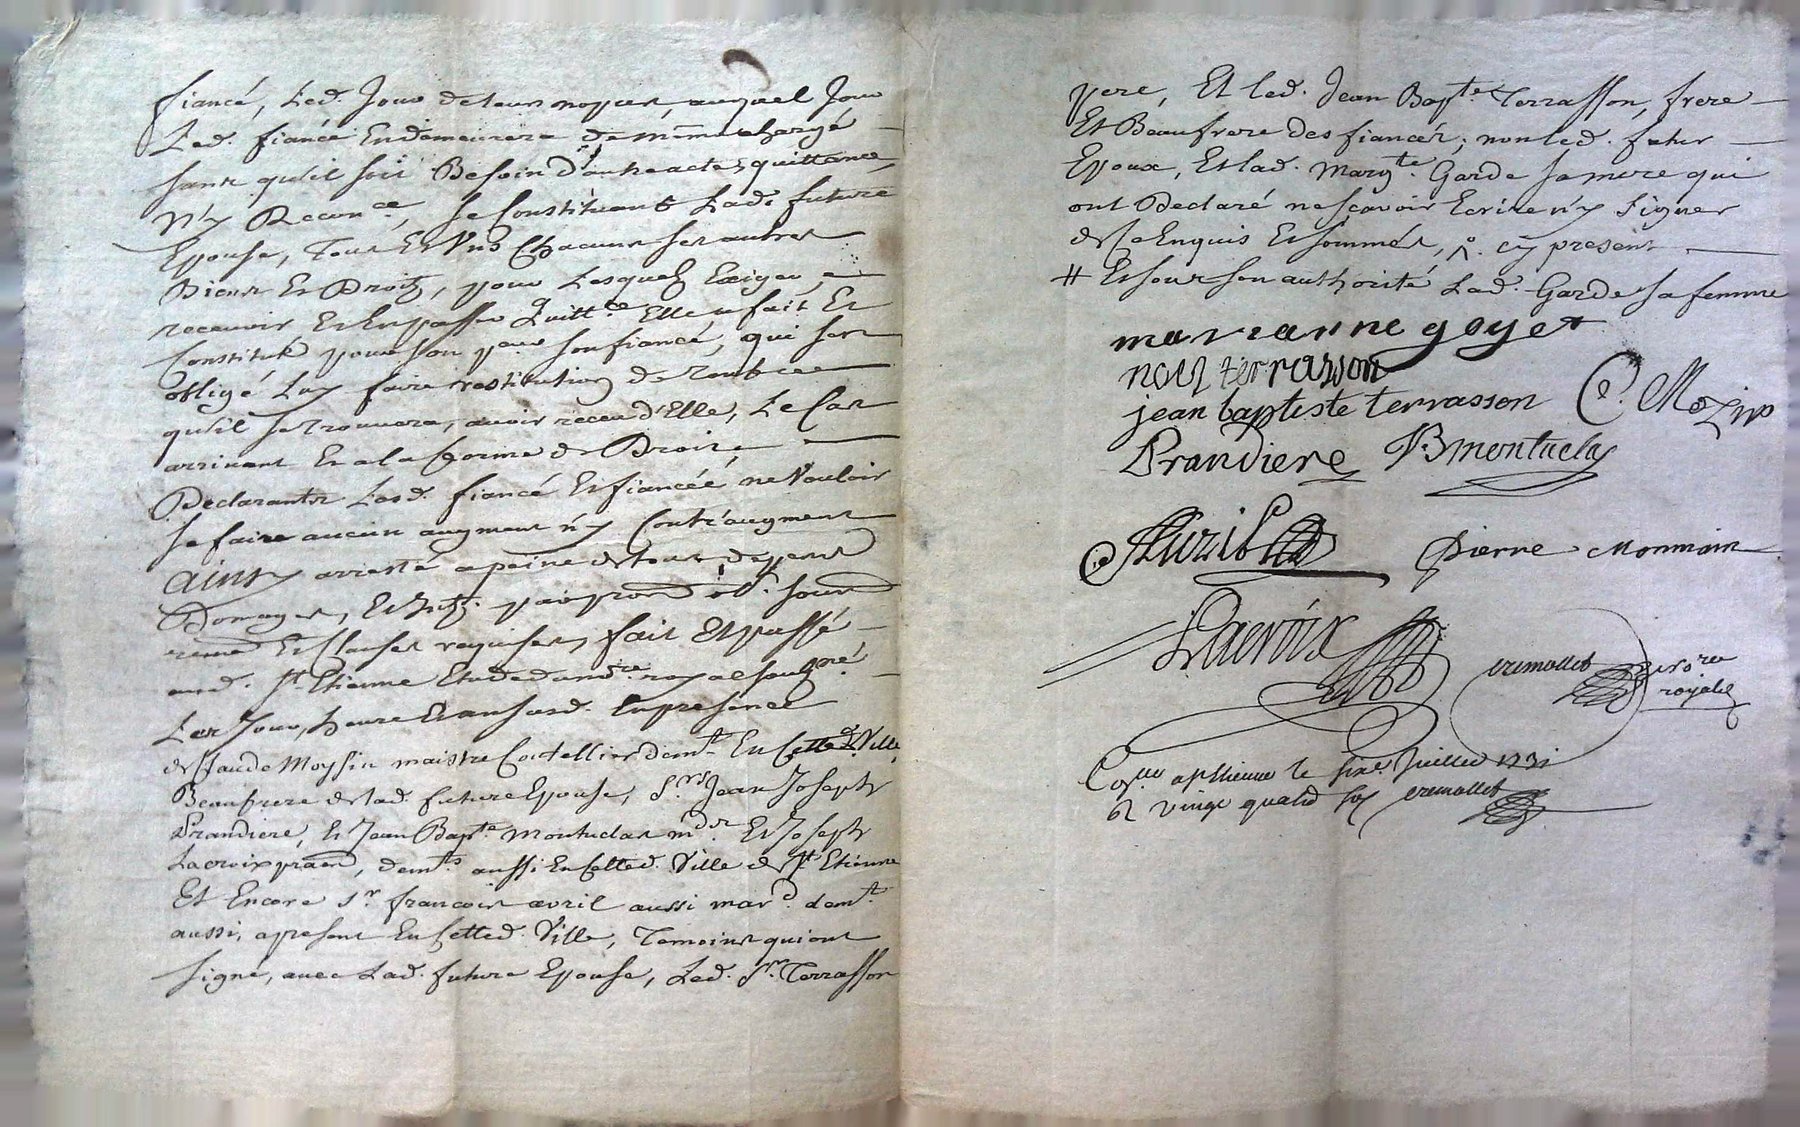 fiancé, Led. Jour de leurs nopces, auquel Jour
Led. fiancé En demeurera de mesme chargé
sans qu'il soit Besoin d'autre acte, quittance,
n'y Reconce, se Constituant Lad. future
Epouse, Tous Et Uns Chacuns ses autres
Biens Et Droitz, pour Lesquels Exiger,
recevoir Et En passer Quittce Elle a fait Et
Constitué pour son peur son fiancé, qui sera
obligé Luy faire restitution de tout ce
qu'il se trouvera, avoir receu d'Elle, Le Cas
arrivant Et a la forme de Droit,
Declarants Lesd. fiancé Et fiancéé ne Vouloir
se faire aucun augment n'y Contr'augment
ainsy arresté a peine de tous depens
Domages, Et Intz. par prom ob. soum
renon Et Clauses requises, fait Et passé
aud. St. Etienne Etude dud nore royal sougné.
Les Jour, heure Et an susd. En presence
de Claude Moysin maistre Coutellier demt. En Cetted. Ville,
Beaufrere de lad. future Epouse, Srs. Jean Joseph
Prandiere, Et Jean Bapte Montuclas mds. Et Joseph
Lacroix praen, demts. aussi En Cetted. Ville de St. Etienne
Et Encore Sr. francois avril aussi mard. demt.
aussi, a present En Cetted. Ville, Temoins qui ont
signé, avec Lad. future Epouse, Led. Sr. Terrasson
pere, Et led. Jean Bapte. Terrasson, frere
Et Beaufrere des fiancéz; non led. futur
Epoux, Et lad. Margte. Garde sa mere qui
ont Declaré ne sçavoir Ecrire n'y signer
de ce Enquis Et sommés, cy present
# Et sous son authorité Lad. Garde sa femme
marianne goyet
noel terrasson
jean baptiste terrasson C. Mozin
Prandiere JB montuclas
Auril
Pierre Monmain
Lacroix
cremollet nore
royal
Coллé a St Etienne le sixe. Juillet 1731
et vingt quatre sols cremollet